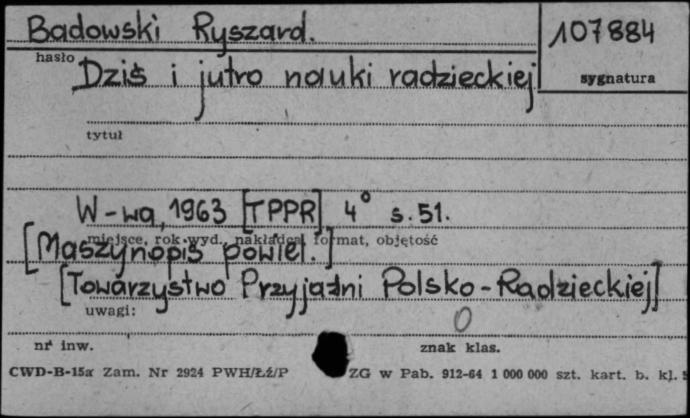 Badowski Ryszard.
107884
hasło
Dziś i jutro nauki radzieckiej
sygnatura
tytuł
W-wa, 1963 [TPPR] 4° s. 51.
miejsce, rok wyd., nakładca, format, objętość
[Maszynopis powiel.]
[Towarzystwo Przyjaźni Polsko-Radzieckiej]
uwagi:
0
nr inw.
znak klas.
CWD-B-15a Zam. Nr 2924 PWH/Łź/P
ZG w Pab. 912-64 1 000 000 szt. kart. b. kl.